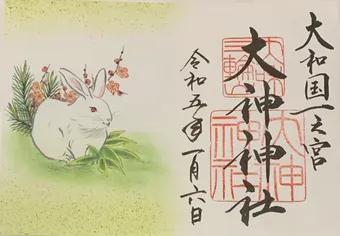 大和国一之宮
大神神社
令和五年一月六日
大神
神社